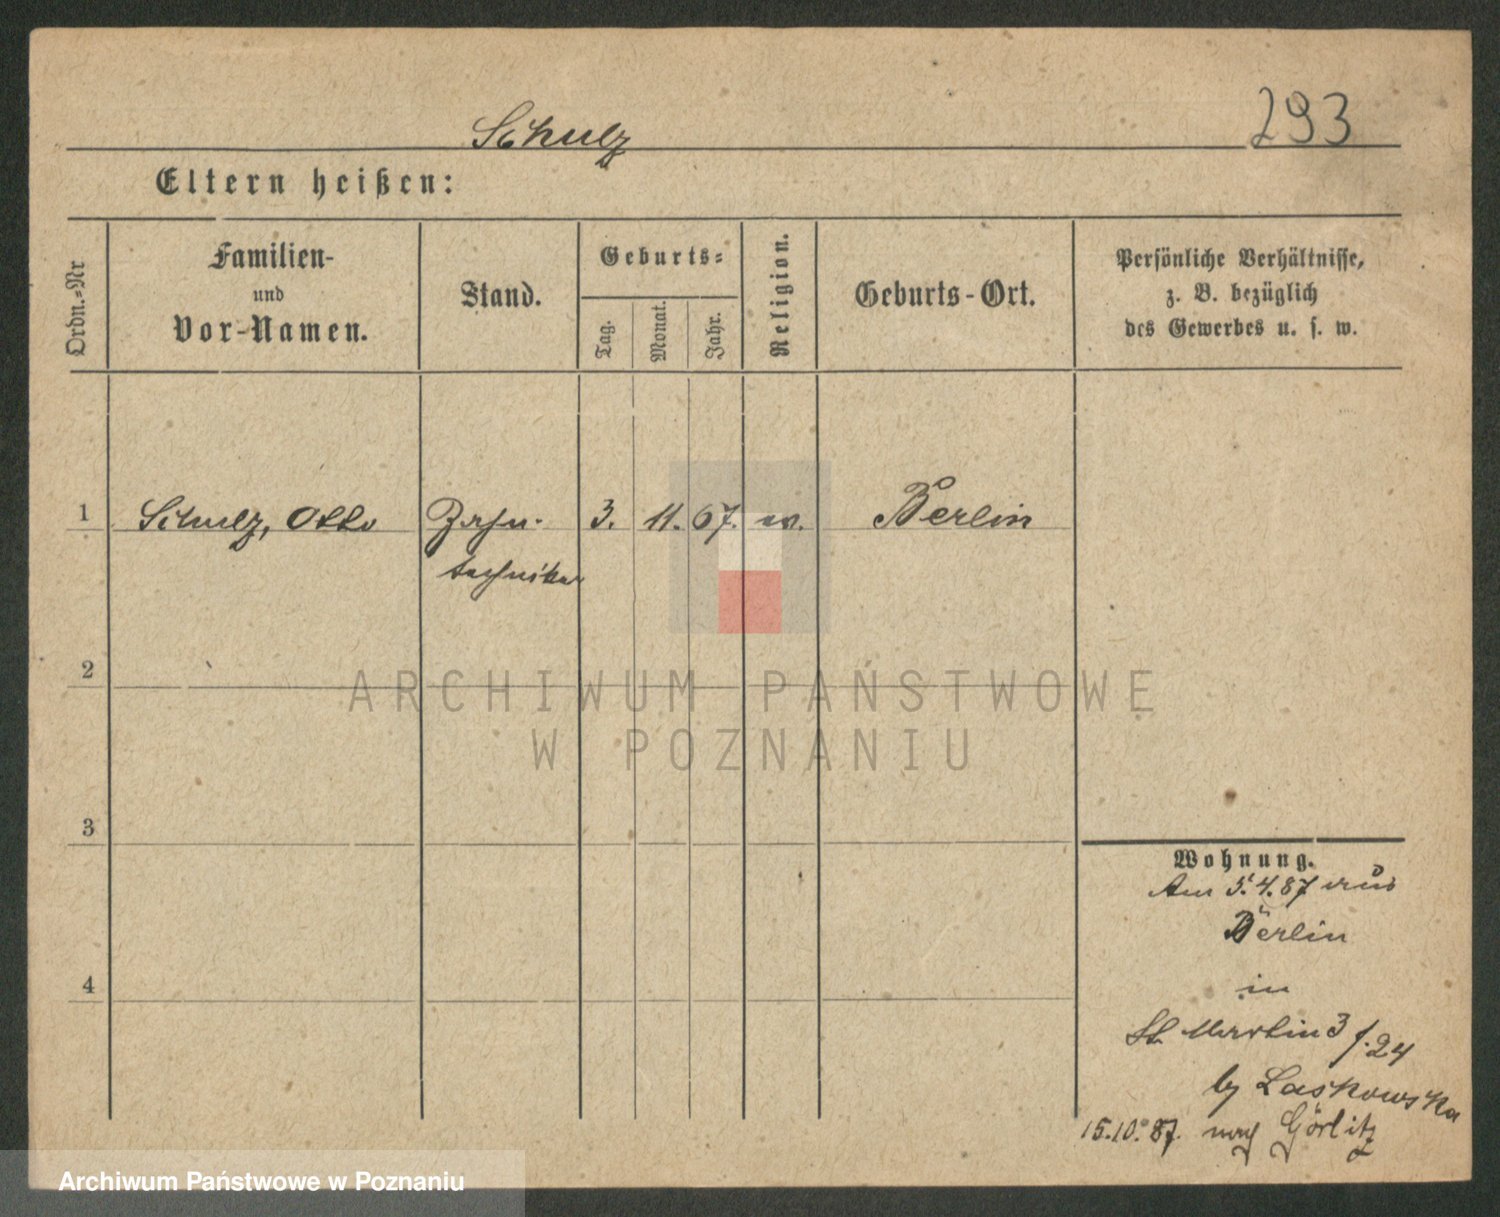 Schulz
293
Eltern heißen:
Ordn.=Nr
Familien-
und
Vor-Namen.
Stand.
Geburts=
Tag.
Monat.
Jahr.
Religion.
Geburts-Ort.
Persönliche Verhältnisse,
z. B. bezüglich
des Gewerbes u. s. w.
1 Schulz, Otto Zahn- 3. 11. 67. ev. Berlin
techniker
2
ARCHIWUM PAŃSTWOWE
W POZNANIU
3
Wohnung.
Am 5.4.87 aus
Berlin
4
in
St. Martin 3 f. 24
by Laskowska
15.10.87. nach Görlitz
Archiwum Państwowe w Poznaniu